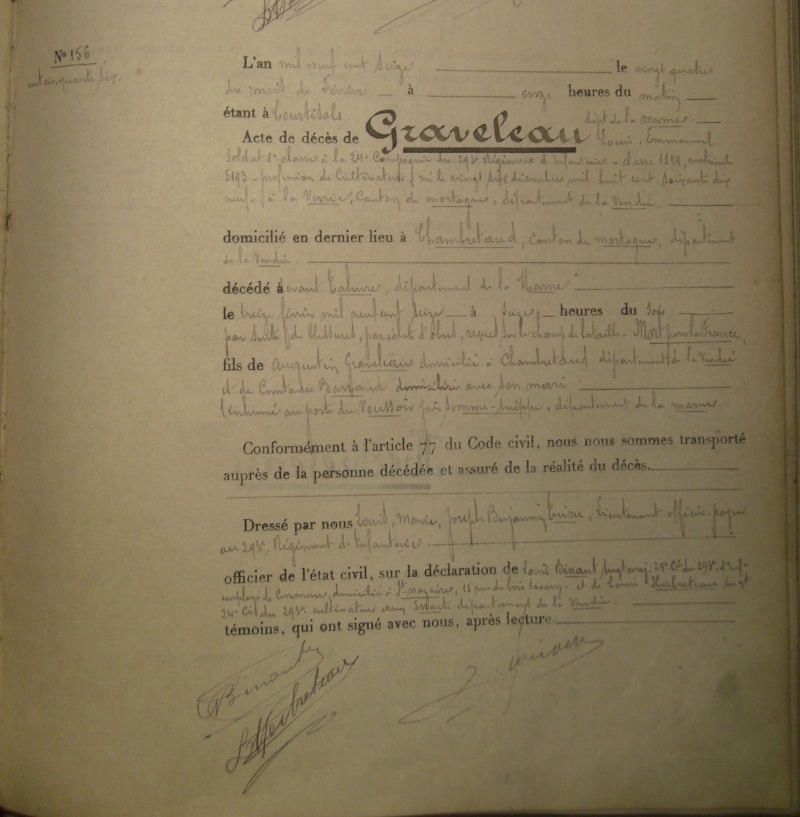 N° 156
cent cinquante six.
L'an mil neuf cent seize le vingt quatre
du mois de Février à onze heures du matin
étant à Courtisols dépt de la marne.
Acte de décès de Graveleau Louis, Emmanuel
Soldat 1e classe à la 24e Compagnie du 293e Régiment d'Infanterie - classe 1899, matricule
5193 - profession de Cultivateur, né le vingt décembre mil huit cent soixante dix
neuf à la Verrie, Canton de mortagne, département de la Vendée
domicilié en dernier lieu à Chambretaud, Canton de mortagne, département
de la Vendée
décédé à devant Tahure, département de la Marne
le treize février mil neuf cent seize à seize heures du soir
par suite de blessures, par éclats d'obus, reçues sur le champ de bataille - Mort pour la France,
fils de Augustin Graveleau domicilié à Chambretaud département de la Vendée
et de Constance Barraud domiciliée avec son mari
inhumé au poste du Voussoir près Somme-Suippe, département de la marne.
Conformément à l'article 77 du Code civil, nous nous sommes transporté
auprès de la personne décédée et assuré de la réalité du décès.
Dressé par nous Louis, Marie, Joseph Benjamin, Lieutenant officier-payeur
au 293e Régiment d'Infanterie
officier de l'état civil, sur la déclaration de Louis Binaut 24e Cie du 293e d'Inf-
employé de Commerce, domicilié à St nazaire, 15 rue du bois et de Louis Herbreteau
24e Cie du 293e cultivateur aux Essarts département de la Vendée
témoins, qui ont signé avec nous, après lecture
Binaut
Herbreteau